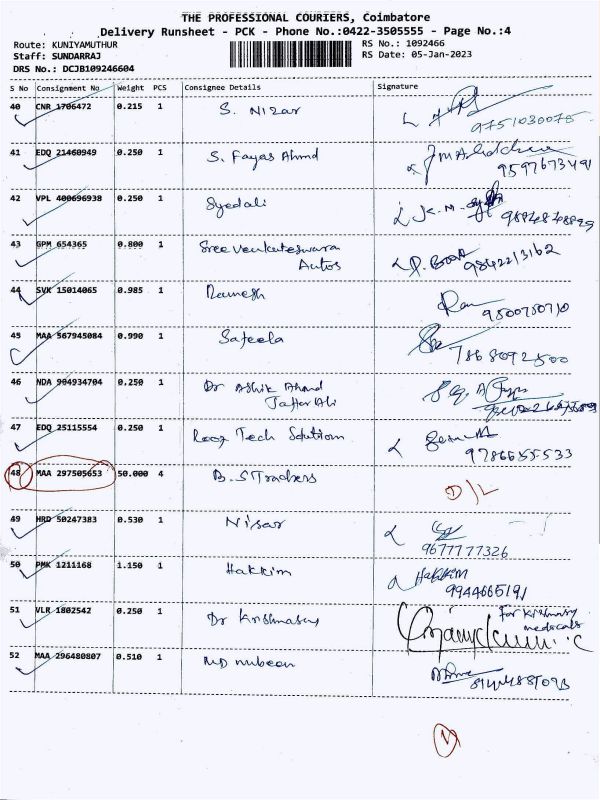 THE PROFESSIONAL COURIERS, Coimbatore
Delivery Runsheet - PCK - Phone No.:0422-3505555 - Page No.:4
Route: KUNIYAMUTHUR
RS No.: 1092466
Staff: SUNDARRAJ
RS Date: 05-Jan-2023
DRS No.: DCJB109246604
S No Consignment No Weight PCS Consignee Details Signature
40 CNR 1706472 0.215 1 S. Nizar
9751030075
41 EDQ 21460949 0.250 1 S. Fayas Ahmd
9597673491
42 VPL 400696938 0.250 1 Syedali
43 GPM 654365 0.800 1 Sree Venkateswara
Autos 9842213162
44 SVK 15014065 0.985 1 Ramesh
9500750710
45 MAA 567945084 0.990 1 Safeela
7868092500
46 NDA 904934704 0.250 1 Dr Ashik Ahmd
Jaffar Ali
47 EDQ 25115554 0.250 1 Tech Solution
9786655533
48 MAA 297505653 50.000 4 B.S Traders D/L
49 HRD 50247383 0.530 1 Nisar
9677777326
50 PMK 1211168 1.150 1 Hakkim Hakkim
9944665191
51 VLR 1802542 0.250 1 Dr Krishnasy for Krishnasy
medicals
52 MAA 296480807 0.510 1 MD